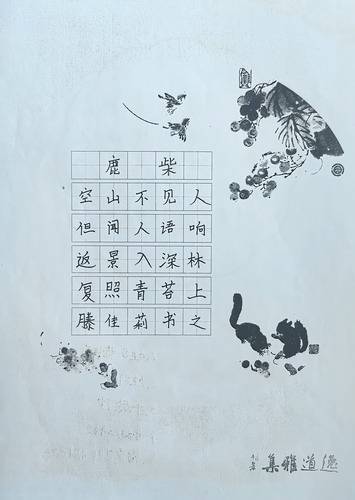 鹿柴
空山不见人
但闻人语响
返景入深林
复照青苔上
滕佳莉书之
集雅道